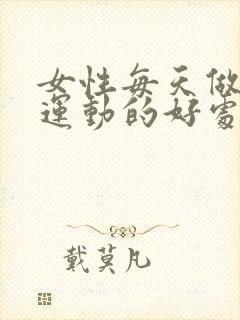 女性每天做
運動的好處
戴莫凡